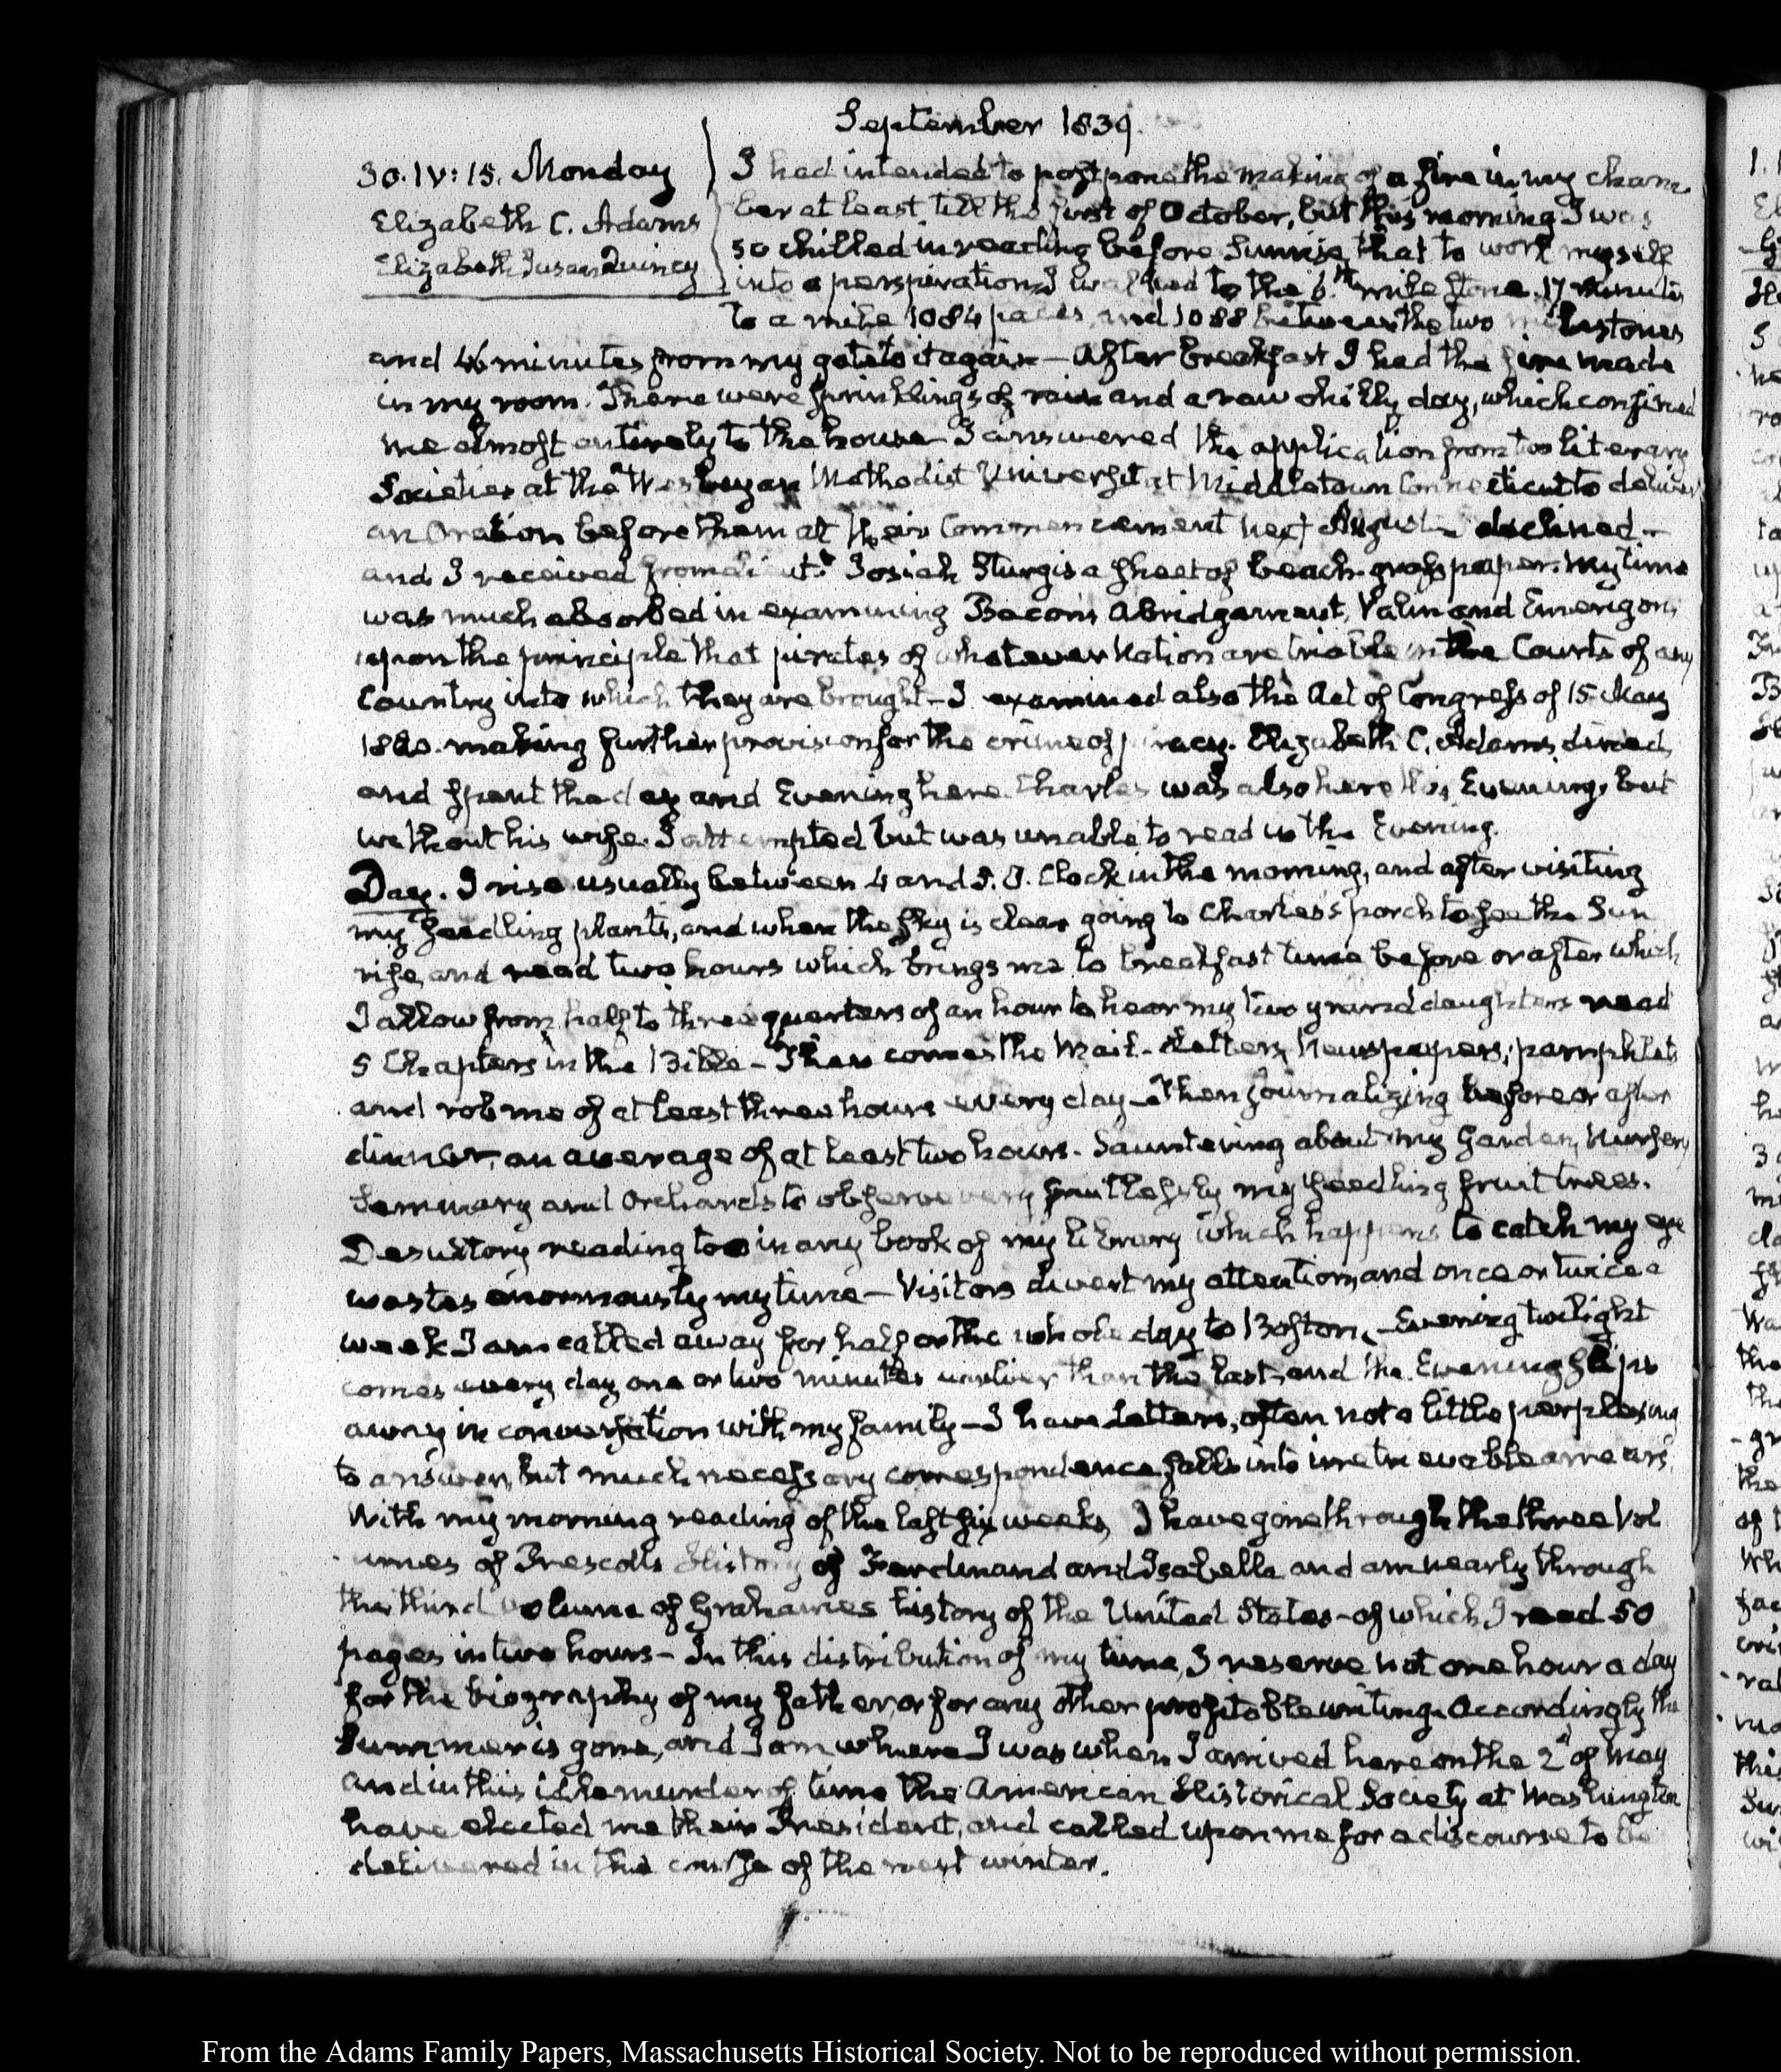 September 1839.
30. IV: 15. Monday
Elizabeth C. Adams
Elizabeth Susan Quincy
I had intended to postpone the making of a fire in my cham
ber at least till the first of October, but this morning I was
so chilled in reading before Sunrise that to work myself
into a perspiration, I walked to the 6th. mile stone. 17 minutes
to a mile 1084 paces and 1088 between the two milestones
and 46 minutes from my gate to it again — After breakfast I had the fire made
in my room. There were sprinklings of rain and a raw chilly day, which confined
me almost entirely to the house I answered the application from two literary
Societies at the Wesleyan Methodist Universit at Middletown Connecticut to deliver
an Oration before them at their Commencement next August – declined —
and I received from Lieutt. Josiah Sturgis a sheet of beach-grass paper. My time
was much absorbed in examining Bacon's Abridgement, Valin and Emerigon,
upon the principle that pirates of whatever Nation are triable in the Courts of any
Country into which they are brought – I examined also the Act of Congress of 15 May
1820. making further provision for the crime of piracy. Elizabeth C. Adams dined
and spent the day and Evening here. Charles was also here this Evening, but
without his wife. I attempted but was unable to read in the Evening.
Day. I rise usually between 4 and 5. O. Clock in the morning, and after visiting
my seedling plants, and when the sky is clear going to Charles's porch to see the Sun
rise, and read two hours which brings me to breakfast time before or after which
I allow from half to three quarters of an hour to hear my two grand daughters read
5 Chapters in the Bible – Then comes the Mail – Letters, Newspapers, pamphlets
and rob me of at least three hours every day – Then journalizing before or after
dinner, an average of at least two hours. Sauntering about my Garden, Nursery
Seminary and Orchards to observe very fruitlessly my seedling fruit trees.
Desultory reading too in any book of my library which happens to catch my eye
wastes enormously my time — Visitors divert my attention, and once or twice a
week I am called away for half or the whole day to Boston. – Evening twilight
comes every day one or two minutes earlier than the last, and the Evening slips
away in conversation with my family – I have Letters, often not a little perplexing
to answer, but much necessary correspondence falls into irretrievable arrears.
With my morning reading of the last six weeks, I have gone through the three Vol
umes of Prescott's History of Ferdinand and Isabella and am nearly through
the third volume of Grahame's history of the United States – of which I read 50
pages in two hours – In this distribution of my time, I reserve not one hour a day
for the biography of my father, or for any other profitable writing. Accordingly the
Summer is gone, and I am where I was when I arrived here on the 2d of May
and in this idle murder of time the American Historical Society at Washington
have elected me their President, and called upon me for a discourse to be
delivered in the course of the next winter.
From the Adams Family Papers, Massachusetts Historical Society. Not to be reproduced without permission.